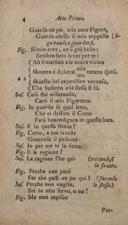 4 Atto Primo.
Guarda un po, mio caro Figaro,
Guarda adesso il mio cappello (se-
guitando a guardarsi.
Fig. Sì mio core, or è più bello:
Sembra fatto in ver per
(Ah il mattino alle nozze vicino
(Quanto è dolce al tenero sposo
(Questo bel cappellino vezzoso,
(Che Susanna ella stessa si fè.
Sus. Cosa stai misurando,
Caro il mio Figaretto?
Fig. Io guardo se quel letto,
Che ci destina il Conte
Farà buona figura in questo loco.
Sus. E in questa stanza?
Fig. Certo, a noi la cede
Generoso il padrone.
Sus. Io per me te la dono.
Fig. E la ragione?
Sus. La ragione l'ho qui. (toccandosi
la fronte.
Fig. Perchè non puoi
Far che passi un po qui? (facendo
lo stesso.
Sus. Perchè non voglio.
Sei tu mio servo, o no?
Fig. Ma non capisco
Per-